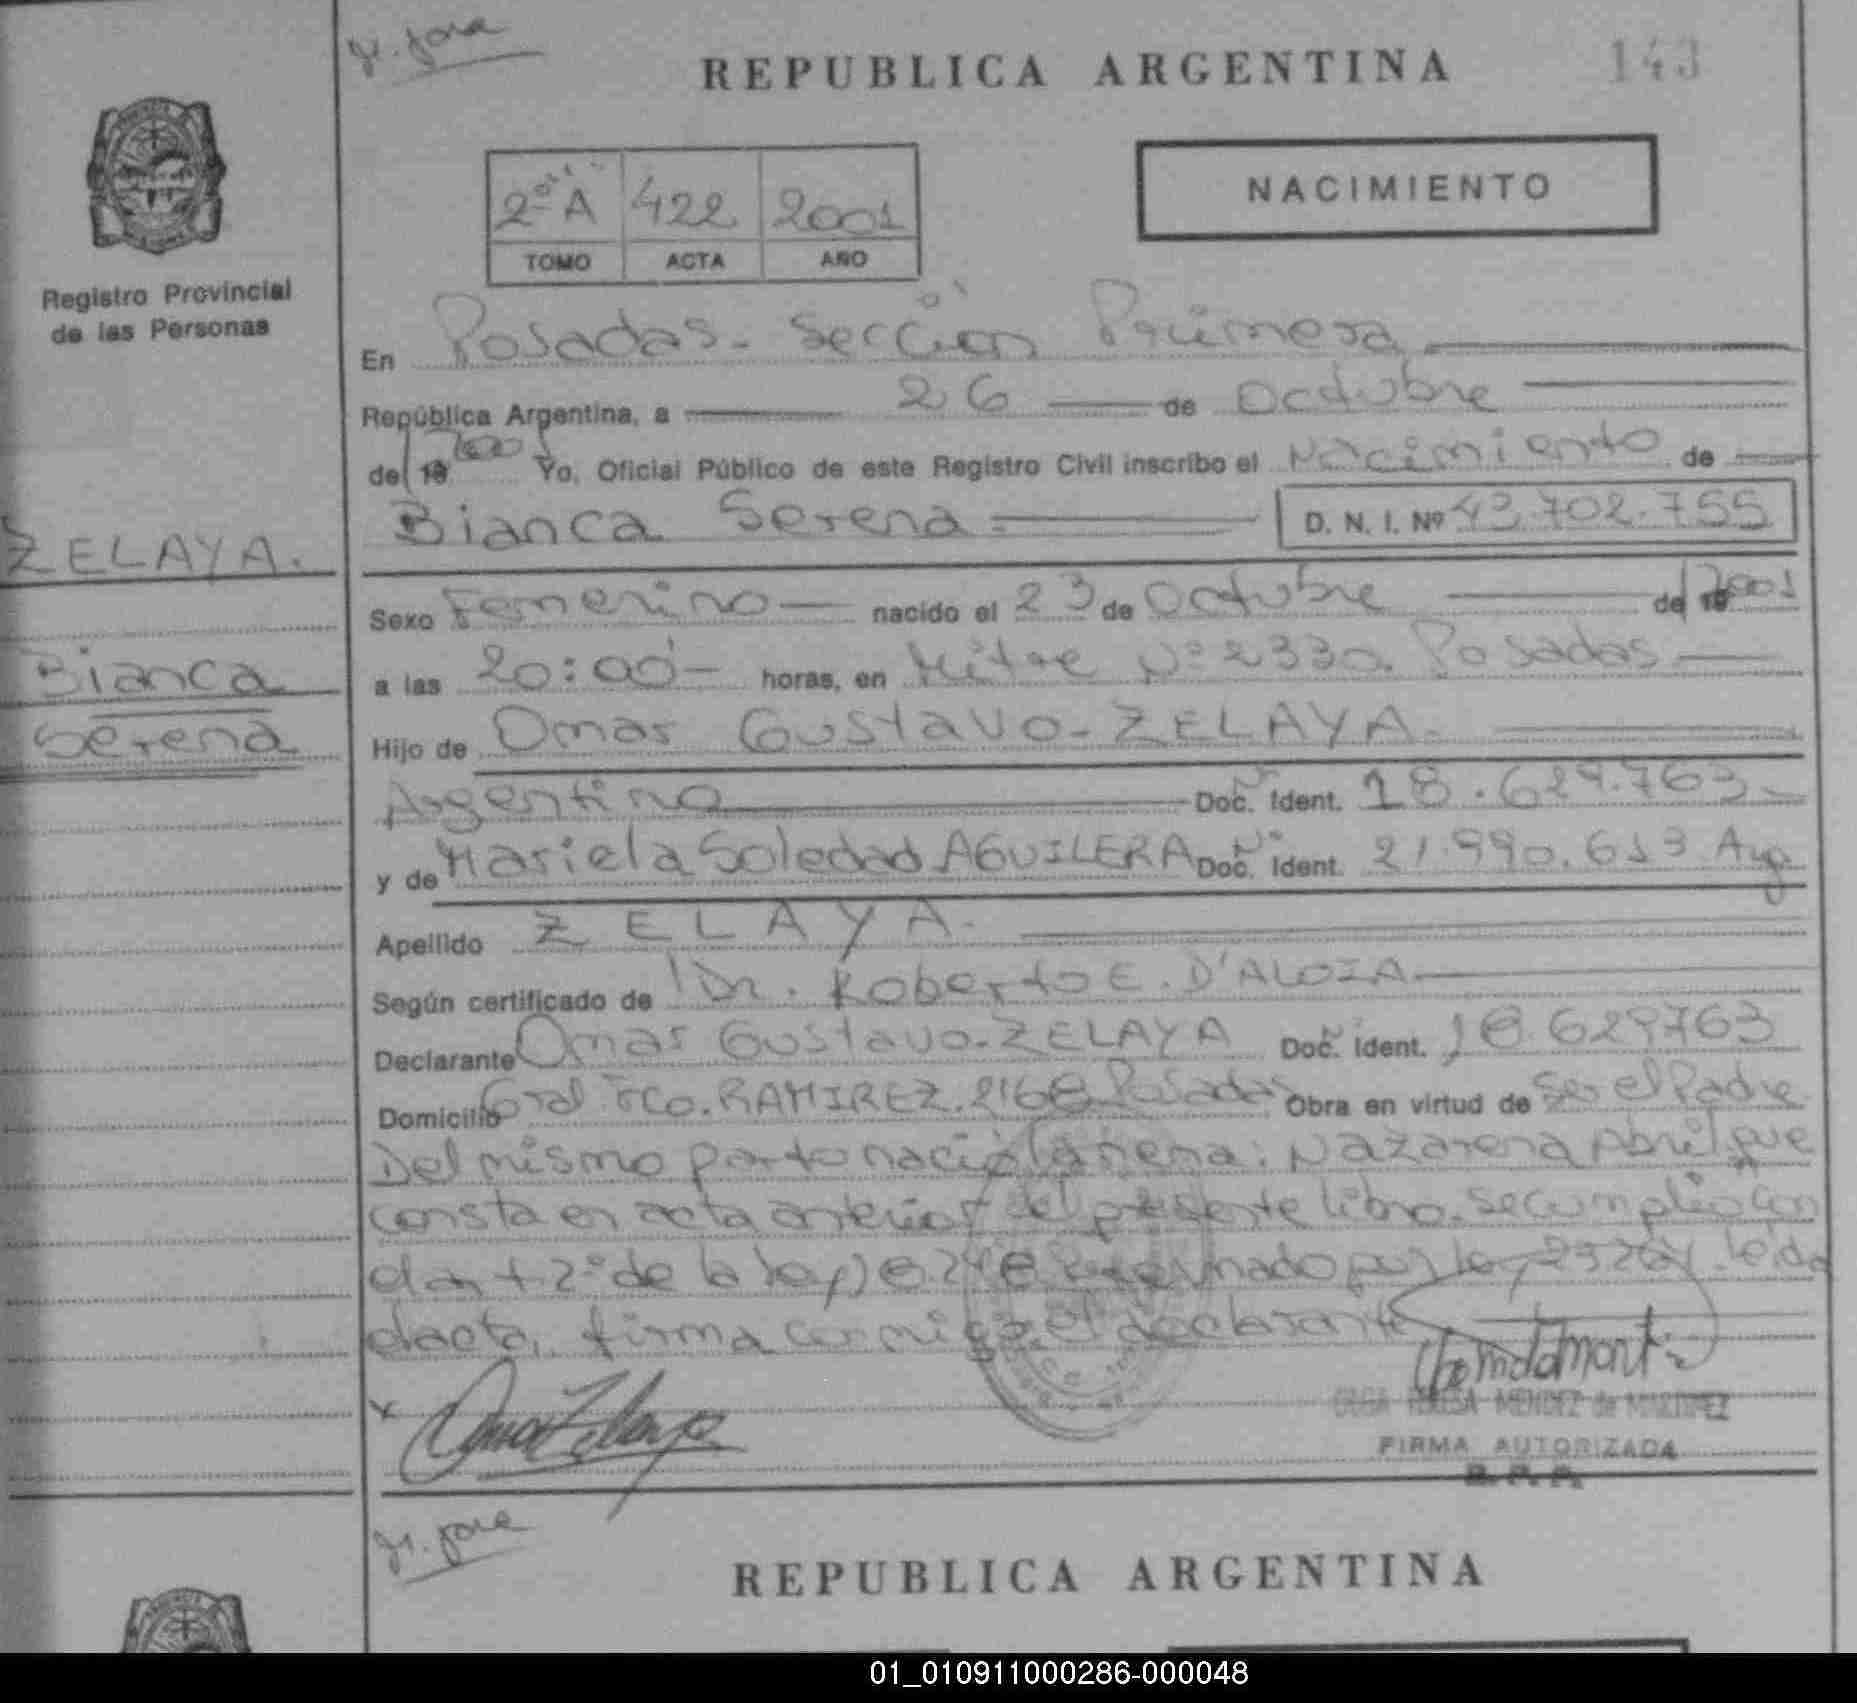 REPUBLICA ARGENTINA
143
2º A 422 2001
TOMO ACTA AÑO
NACIMIENTO
Registro Provincial
de las Personas
En Posadas - Sección Primera
República Argentina, a 26 de Octubre
de 19 2001 Yo, Oficial Público de este Registro Civil inscribo el Nacimiento de
Bianca Serena D. N. I. Nº 43.702.755
ZELAYA.
Bianca
Serena
Sexo Femenino nacido el 23 de Octubre de 19 2001
a las 20:00 horas, en Mitre Nº 2330 Posadas
Hijo de Omar Gustavo - ZELAYA.
Argentino Doc. Ident. Nº 18.629.763
y de Mariela Soledad AGUILERA Doc. Ident. Nº 21.990.613 Arg
Apellido ZELAYA.
Según certificado de Dr. Roberto E. D'ALOIA
Declarante Omar Gustavo - ZELAYA Doc. Ident. Nº 18.629763
Domicilio Gral. Fco. RAMIREZ. 2168 Posadas Obra en virtud de Ser el Padre
Del mismo parto nació la nena: Nazarena Abril que
consta en acta anterior del presente libro. Se cumplio con
el art 2º de la ley 18.248 Reformado por la 23264. leida
el acta, firma conmigo el declarante
Omar Zelaya
OLGA TERESA MENDEZ de MARTINEZ
FIRMA AUTORIZADA
R. P. P.
REPUBLICA ARGENTINA
01_010911000286-000048